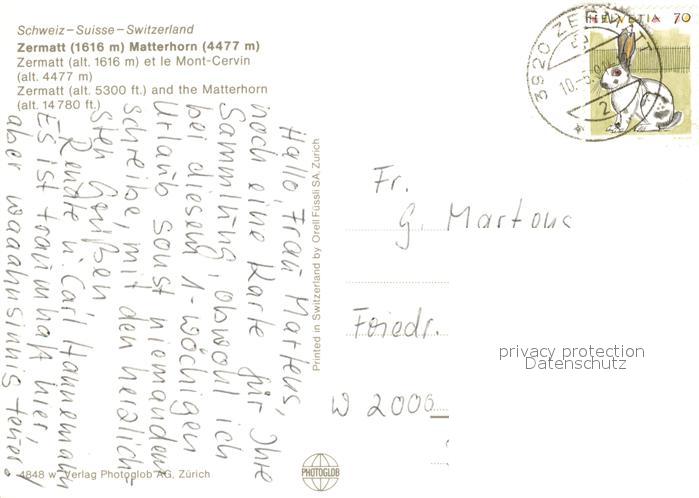 Schweiz–Suisse–Switzerland
Zermatt (1616 m) Matterhorn (4477 m)
Zermatt (alt. 1616 m) et le Mont-Cervin
(alt. 4477 m)
Zermatt (alt. 5300 ft.) and the Matterhorn
(alt. 14 780 ft.)
HELVETIA 70
3920 ZERMATT
Hallo, Frau Martens,
noch eine Karte für Ihre
Sammlung, obwohl ich
bei diesem 1-wöchigen
Urlaub sonst niemandem
schreibe, mit den herzlich-
sten Grüßen
Renate u. Carl Hannemann
Es ist traumhaft hier,
aber waaahnsinnig teuer!
Printed in Switzerland by Orell Füssli SA, Zurich
Fr.
G. Martens
Friedr.
W 2000
privacy protection
Datenschutz
4848 w Verlag Photoglob AG, Zürich
PHOTOGLOB